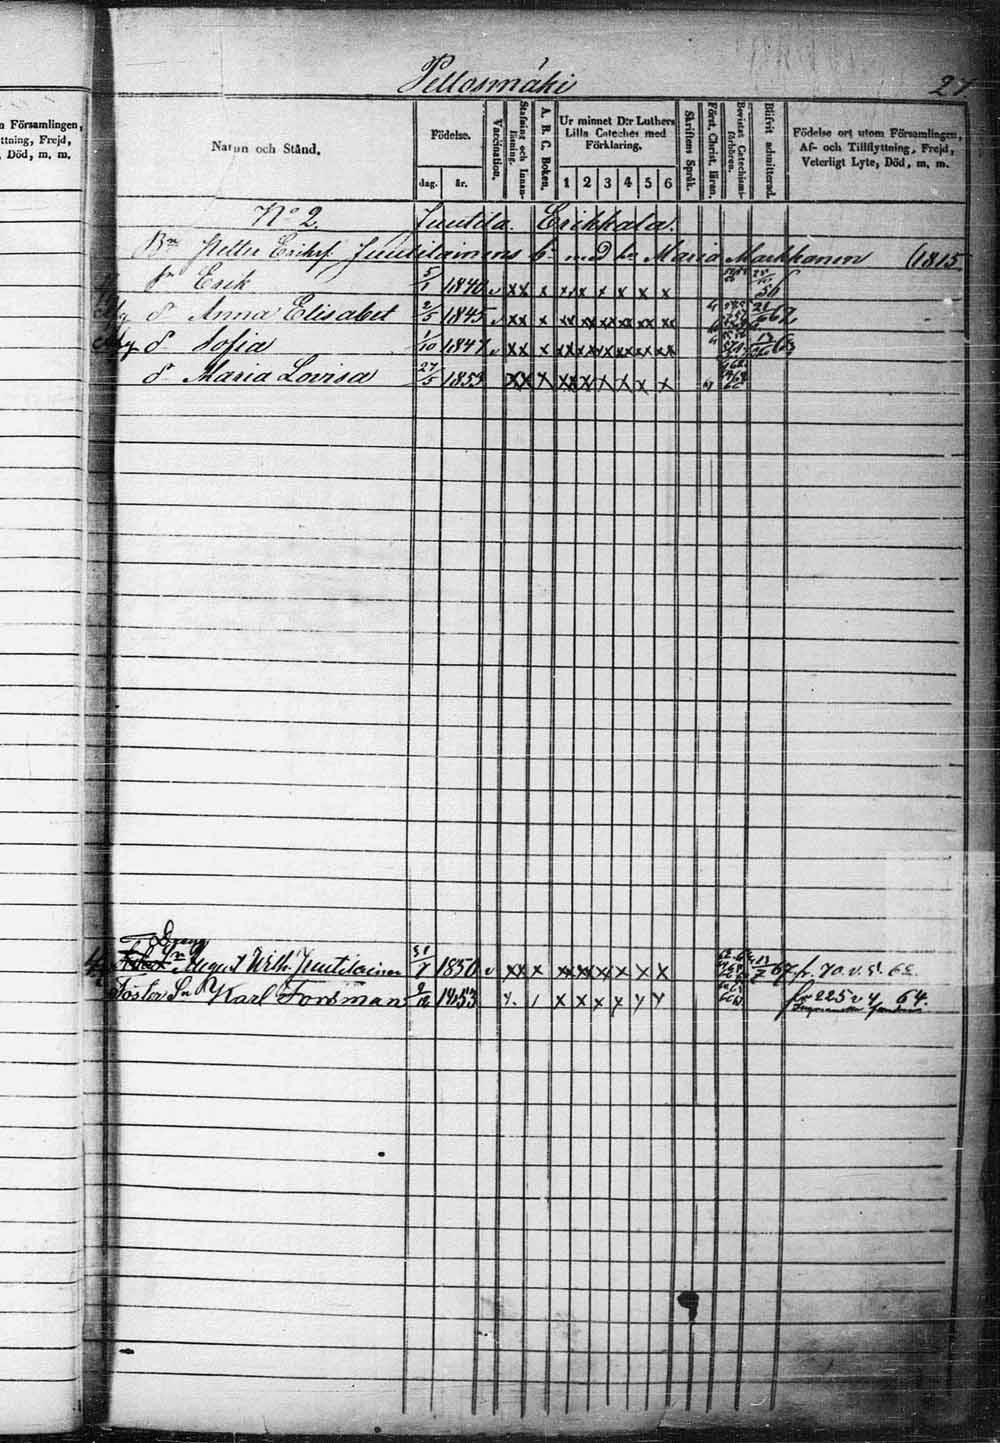 n Församlingen,
ttning, Frejd,
, Död, m. m.
Pellosmäki
27
Namn och Stånd.
Födelse.
dag. år.
Vaccination.
Stafning och Innan-läsning.
A. B. C. Boken.
Ur minnet D:r Luthers
Lilla Cateches med
Förklaring.
1 2 3 4 5 6
Skriftens Språk.
Först. Christ. läran.
Bevistat Catechismi-förhören.
Blifvit admitterad.
Födelse ort utom Församlingen,
Af- och Tillflyttning, Frejd,
Veterligt Lyte, Död, m. m.
No 2. Juutila Erikkala.
Petter Juutilainens b. med h. Maria Markkanen (1815
Sn Erik 5/1 1840 v xx x x x x x x x 56
dr Anna Elisabet 2/5 1845 v xx x xx xx xx xx xx xx 62
dr Sofia 1/10 1847 v xx x xx xx xx xx xx xx 63
dr Maria Lovisa 27/5 1853 xx x xx xx x x x x
Dräng
August Wilh. Juutilainen 1850 v xx x xx xx xx x x x 67 fr. 70. v. 62
Foster Sn Karl Forsman 1853 x x x x fr 225 v 4 64.